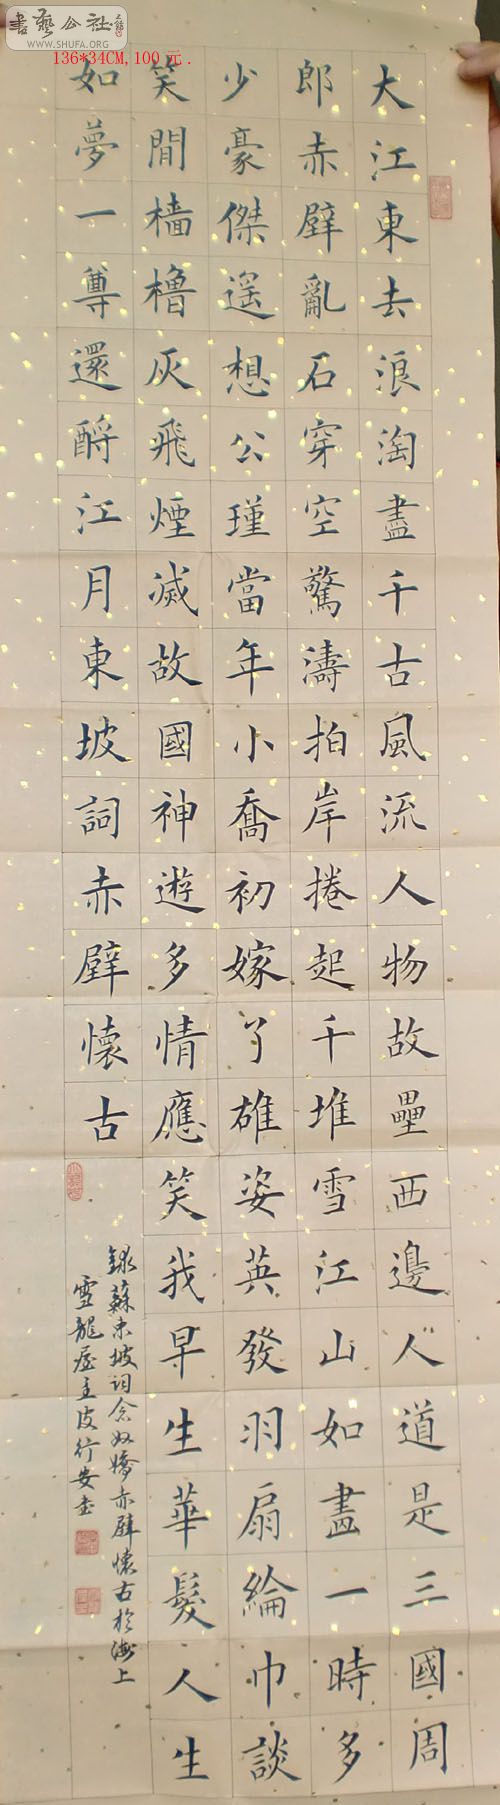 書藝公社
WWW.SHUFA.ORG
136*34CM,100元.
大江東去浪淘盡千古風流人物故壘西邊人道是三國周
郎赤壁亂石穿空驚濤拍岸捲起千堆雪江山如畫一時多
少豪傑遙想公瑾當年小喬初嫁了雄姿英發羽扇綸巾談
笑閒檣櫓灰飛煙滅故國神遊多情應笑我早生華髮人生
如夢一尊還酹江月東坡詞赤壁懷古
錄蘇東坡詞念奴嬌赤壁懷古於海上
雪龍屋主皮行安書